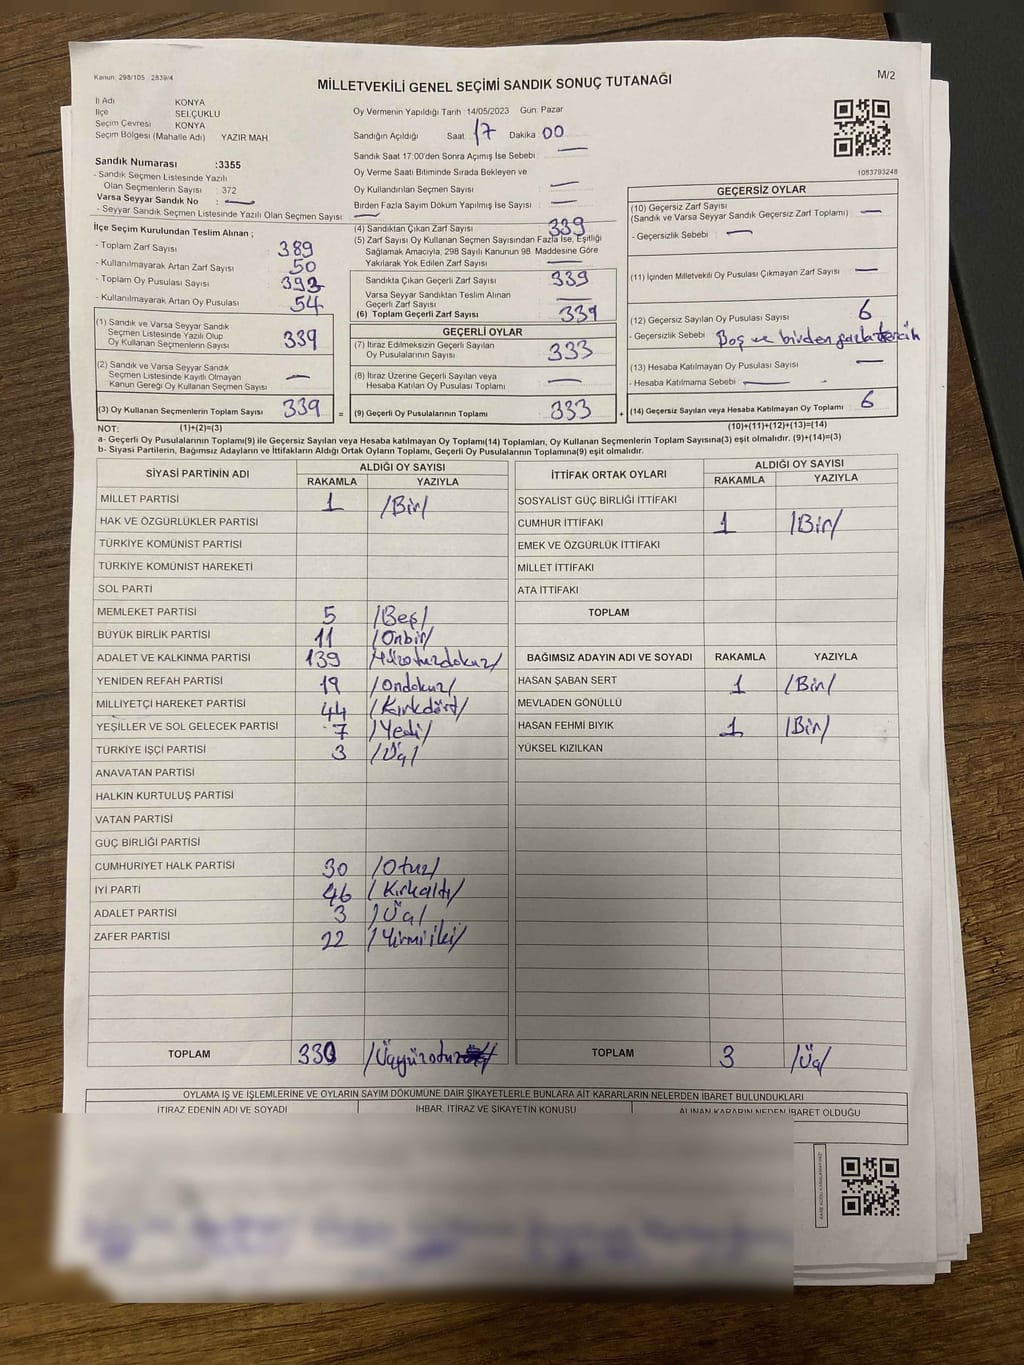 Kanun: 298/105 : 2839/4
MİLLETVEKİLİ GENEL SEÇİMİ SANDIK SONUÇ TUTANAĞI
M/2
İl Adı KONYA
İlçe SELÇUKLU
Seçim Çevresi KONYA
Seçim Bölgesi (Mahalle Adı) YAZIR MAH
Sandık Numarası :3355
- Sandık Seçmen Listesinde Yazılı
Olan Seçmenlerin Sayısı : 372
Varsa Seyyar Sandık No : —
- Seyyar Sandık Seçmen Listesinde Yazılı Olan Seçmen Sayısı : —
Oy Vermenin Yapıldığı Tarih :14/05/2023 Gün: Pazar
Sandığın Açıldığı Saat 17 Dakika 00
Sandık Saat 17:00'den Sonra Açımış İse Sebebi : —
Oy Verme Saati Bitiminde Sırada Bekleyen ve
Oy Kullandırılan Seçmen Sayısı : —
Birden Fazla Sayım Döküm Yapılmış İse Sayısı : —
1083793248
İlçe Seçim Kurulundan Teslim Alınan ;
- Toplam Zarf Sayısı 389
- Kullanılmayarak Artan Zarf Sayısı 50
- Toplam Oy Pusulası Sayısı 393
- Kullanılmayarak Artan Oy Pusulası 54
(1) Sandık ve Varsa Seyyar Sandık
Seçmen Listesinde Yazılı Olup
Oy Kullanan Seçmenlerin Sayısı 339
(2) Sandık ve Varsa Seyyar Sandık
Seçmen Listesinde Kayıtlı Olmayan
Kanun Gereği Oy Kullanan Seçmen Sayısı —
(3) Oy Kullanan Seçmenlerin Toplam Sayısı 339 =
(4) Sandıktan Çıkan Zarf Sayısı 339
(5) Zarf Sayısı Oy Kullanan Seçmen Sayısından Fazla İse, Eşitliği
Sağlamak Amacıyla, 298 Sayılı Kanunun 98. Maddesine Göre
Yakılarak Yok Edilen Zarf Sayısı —
Sandıkta Çıkan Geçerli Zarf Sayısı 339
Varsa Seyyar Sandıktan Teslim Alınan
Geçerli Zarf Sayısı —
(6) Toplam Geçerli Zarf Sayısı 339
GEÇERLİ OYLAR
(7) İtiraz Edilmeksizin Geçerli Sayılan
Oy Pusulalarının Sayısı 333
(8) İtiraz Üzerine Geçerli Sayılan veya
Hesaba Katılan Oy Pusulası Toplamı —
(9) Geçerli Oy Pusulalarının Toplamı 333 +
GEÇERSİZ OYLAR
(10) Geçersiz Zarf Sayısı
(Sandık ve Varsa Seyyar Sandık Geçersiz Zarf Toplamı) —
- Geçersizlik Sebebi : —
(11) İçinden Milletvekili Oy Pusulası Çıkmayan Zarf Sayısı —
(12) Geçersiz Sayılan Oy Pusulası Sayısı 6
- Geçersizlik Sebebi : Boş ve birden fazla tercih
(13) Hesaba Katılmayan Oy Pusulası Sayısı —
- Hesaba Katılmama Sebebi : —
(14) Geçersiz Sayılan veya Hesaba Katılmayan Oy Toplamı 6
NOT: (1)+(2)=(3) (10)+(11)+(12)+(13)=(14)
a- Geçerli Oy Pusulalarının Toplamı(9) ile Geçersiz Sayılan veya Hesaba katılmayan Oy Toplamı(14) Toplamları, Oy Kullanan Seçmenlerin Toplam Sayısına(3) eşit olmalıdır. (9)+(14)=(3)
b- Siyasi Partilerin, Bağımsız Adayların ve İttifakların Aldığı Ortak Oyların Toplamı, Geçerli Oy Pusulalarının Toplamına(9) eşit olmalıdır.
SİYASİ PARTİNİN ADI ALDIĞI OY SAYISI
RAKAMLA YAZIYLA
MİLLET PARTİSİ 1 /Bir/
HAK VE ÖZGÜRLÜKLER PARTİSİ
TÜRKİYE KOMÜNİST PARTİSİ
TÜRKİYE KOMÜNİST HAREKETİ
SOL PARTİ
MEMLEKET PARTİSİ 5 /Beş/
BÜYÜK BİRLİK PARTİSİ 11 /Onbir/
ADALET VE KALKINMA PARTİSİ 139 /Yüzotuzdokuz/
YENİDEN REFAH PARTİSİ 19 /Ondokuz/
MİLLİYETÇİ HAREKET PARTİSİ 44 /Kırkdört/
YEŞİLLER VE SOL GELECEK PARTİSİ 7 /Yedi/
TÜRKİYE İŞÇİ PARTİSİ 3 /Üç/
ANAVATAN PARTİSİ
HALKIN KURTULUŞ PARTİSİ
VATAN PARTİSİ
GÜÇ BİRLİĞİ PARTİSİ
CUMHURİYET HALK PARTİSİ 30 /Otuz/
İYİ PARTİ 46 /Kırkaltı/
ADALET PARTİSİ 3 /Üç/
ZAFER PARTİSİ 22 /Yirmiiki/
TOPLAM 330 /Üçyüzotuz
İTTİFAK ORTAK OYLARI ALDIĞI OY SAYISI
RAKAMLA YAZIYLA
SOSYALİST GÜÇ BİRLİĞİ İTTİFAKI
CUMHUR İTTİFAKI 1 /Bir/
EMEK VE ÖZGÜRLÜK İTTİFAKI
MİLLET İTTİFAKI
ATA İTTİFAKI
TOPLAM
BAĞIMSIZ ADAYIN ADI VE SOYADI RAKAMLA YAZIYLA
HASAN ŞABAN SERT 1 /Bir/
MEVLADEN GÖNÜLLÜ
HASAN FEHMİ BIYIK 1 /Bir/
YÜKSEL KIZILKAN
TOPLAM 3 /Üç/
OYLAMA İŞ VE İŞLEMLERİNE VE OYLARIN SAYIM DÖKÜMÜNE DAİR ŞİKAYETLERLE BUNLARA AİT KARARLARIN NELERDEN İBARET BULUNDUKLARI
İTİRAZ EDENİN ADI VE SOYADI İHBAR, İTİRAZ VE ŞİKAYETİN KONUSU ALINAN KARARIN NEDEN İBARET OLDUĞU